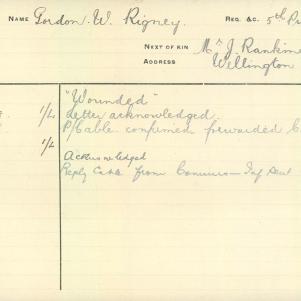 NAME Gordon. W. Rigney. REG. &C. 5th
NEXT OF KIN Mr J. Rankin
ADDRESS Wellington
"Wounded"
1/L Letter acknowledged.
P/Cable confirmed forwarded
1/L
Acknowledged
Reply Cable from